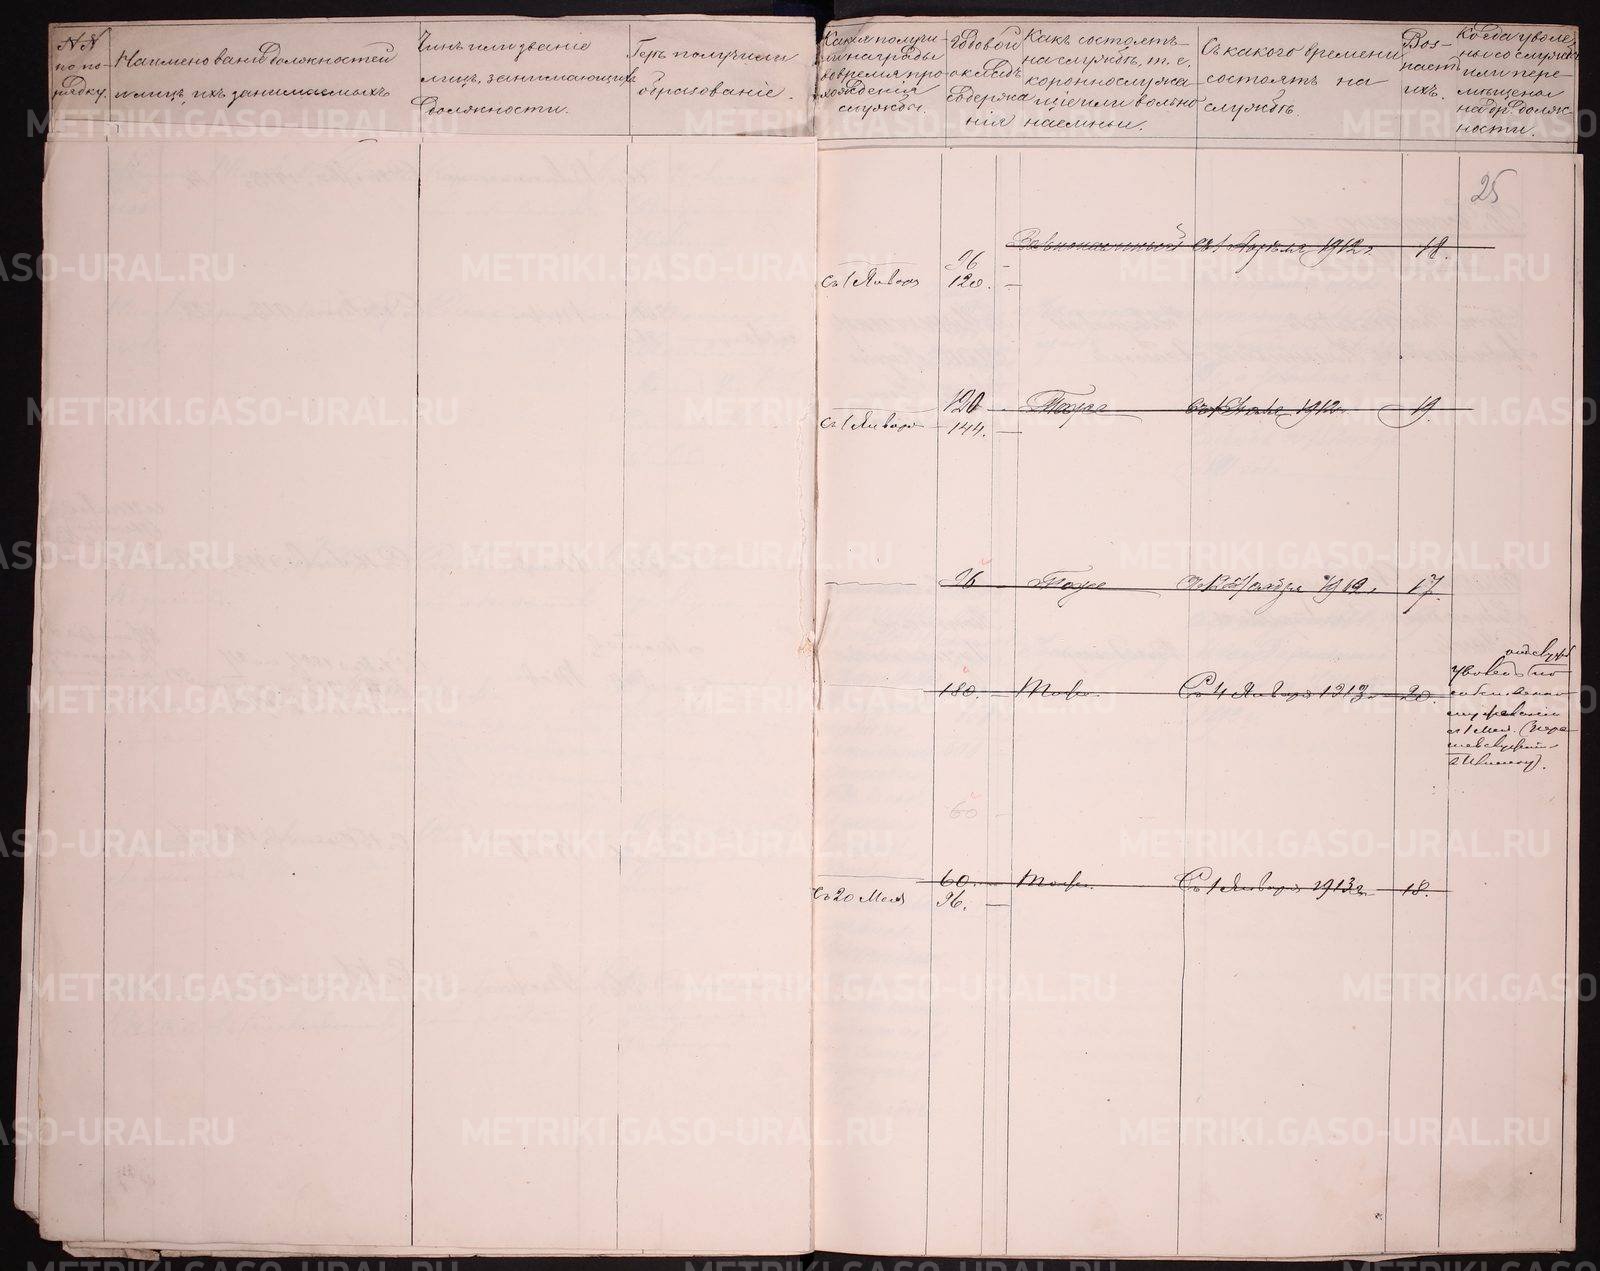 №№
по по-
рядку.
Наименованіе должностей
и лицъ, ихъ занимаемыхъ
Чинъ или званіе
лицъ, занимающихъ
должности.
Гдѣ получили
образованіе.
Какія получи-
ли награды
во время про-
хожденія
службы.
Годовой
окладъ
содержа
нія
Какъ состоятъ
на службѣ, т. е.
коронно служа
щіе или вольно
наемные.
Съ какого времени
состоятъ на
службѣ.
Воз-
растъ
ихъ.
Когда уволе-
ны со службы
или пере-
мѣщены
на др. долж-
ности.
25
96 -
Вольнонаемный съ 1 Апрѣля 1912 г. 18.
съ 1 Января 120. -
120 - Тоже съ 1 1912 г. 19.
съ 1 Января 144. -
96 - Тоже 1912 г. 17.
180. - Тоже. Съ 4 Января 1913 г. 20.
отъ службы
уволенъ по
собственно
съ 1 Мая.
60 -
60. - Тоже. Съ 1 Января 1913 г. 18.
Съ 20 Мая 96. -
METRIKI.GASO-URAL.RU